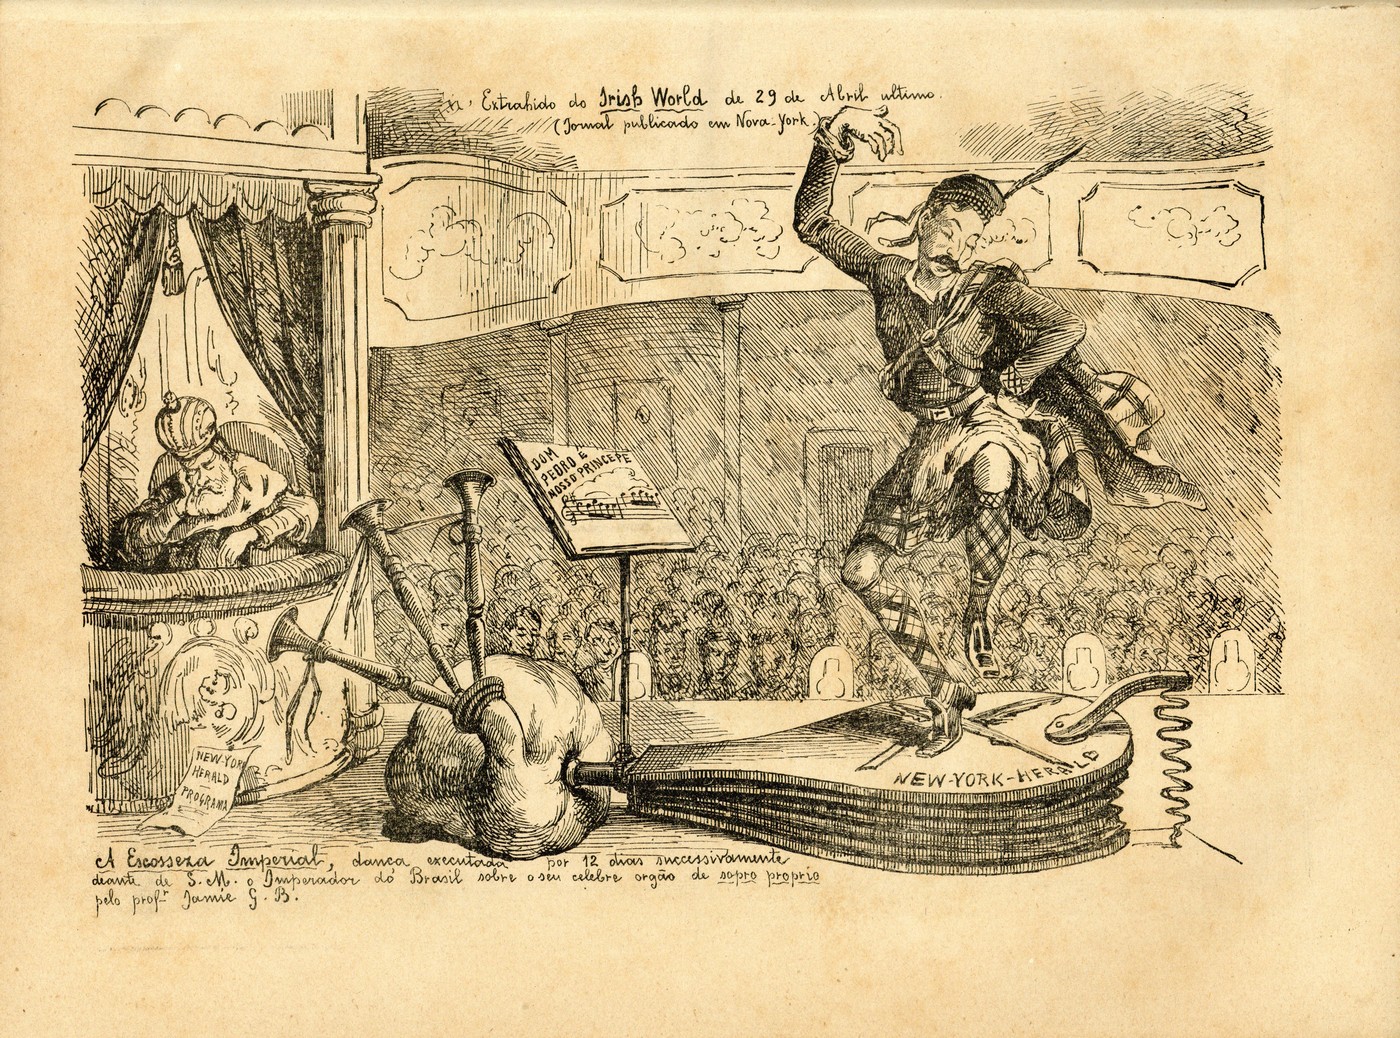 Extrahido do Irish World de 29 de Abril ultimo.
(Jornal publicado em Nova-York)
DOM
PEDRO E
NOSSO PRINCEPE
NEW-YORK
HERALD
PROGRAMA
NEW-YORK-HERALD
A Escosseza Imperial, dança executada por 12 dias successivamente
deante de S. M. o Imperador do Brasil sobre o seu celebre orgão de sopro proprio
pelo profr Jamie G. B.